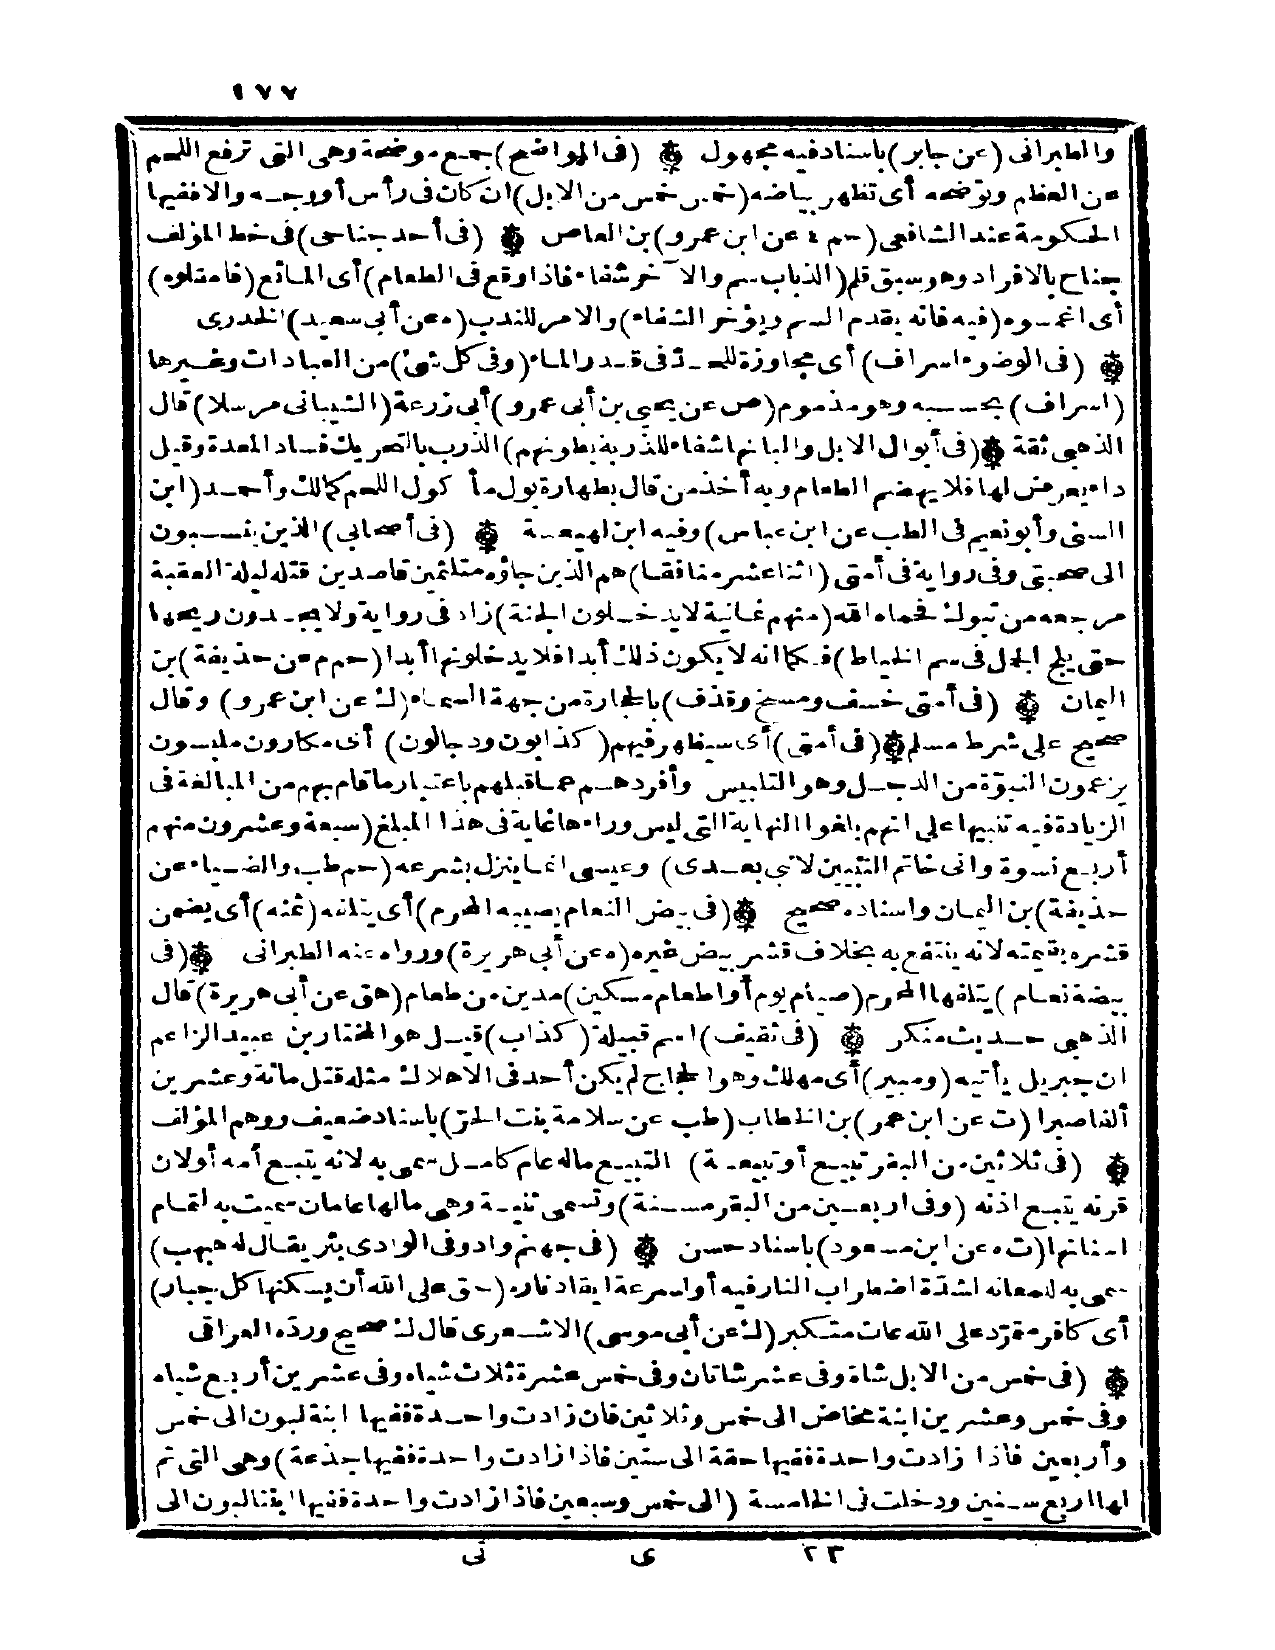 ١٧٧
والطبرانى (عن جابر) باسناد فيه مجهول ۞ (فى المواضح) جمع موضحة وهى التى ترفع اللحم
عن العظم وتوضحه أى تظهر بياضه (خمس خمس من الابل) ان كان فى رأس أو وجه والا ففيها
الحكومة عند الشافعى (حم ٤ عن ابن عمرو) بن العاص ۞ (فى أحد جناحى) فى خط المؤلف
جناح بالافراد وهو سبق قلم (الذباب سم والآخر شفاء فاذا وقع فى الطعام) أى المائع (فامقلوه)
أى اغمسوه (فيه فانه يقدم السم ويؤخر الشفاء) والامر للندب (ه عن أبى سعيد) الخدرى
۞ (فى الوضوء اسراف) أى مجاوزة للحد فى قدر الماء (وفى كل شئ) من العبادات وغيرها
(اسراف) بحسبه وهو مذموم (ص عن يحيى بن أبى عمرو) أبى زرعة (الشيبانى مرسلا) قال
الذهبى ثقة ۞ (فى أبوال الابل وألبانها شفاء للذربة بطونهم) الذرب بالتحريك فساد المعدة وقيل
داء يعرض لها فلا يهضم الطعام وبه أخذ من قال بطهارة بول مأكول اللحم كمالك وأحمد (ابن
السنى وأبو نعيم فى الطب عن ابن عباس) وفيه ابن لهيعة ۞ (فى أصحابى) الذين ينسبون
الى صحبتى وفى رواية فى أمتى (اثنا عشر منافقا) هم الذين جاؤه متلثمين قاصدين قتله ليلة العقبة
مرجعه من تبوك فحماه الله (منهم ثمانية لا يدخلون الجنة) زاد فى رواية ولا يجدون ريحها
حتى يلج الجمل فى سم الخياط) فكما انه لا يكون ذلك أبدا فلا يدخلونها أبدا (حم م عن حذيفة) بن
اليمان ۞ (فى أمتى خسف ومسخ وقذف) بالحجارة من جهة السماء (ك عن ابن عمرو) وقال
صحيح على شرط مسلم ۞ (فى أمتى) أى سيظهر فيهم (كذابون ودجالون) أى مكارون ملبسون
يزعمون النبوّة من الدجل وهو التلبيس وأفردهم عما قبلهم باعتبار ما قام بهم من المبالغة فى
الزيادة فيه تنبيها على انهم بلغوا النهاية التى ليس وراءها غاية فى هذا المبلغ (سبعة وعشرون منهم
أربع نسوة وانى خاتم النبيين لا نبى بعدى) وعيسى انما ينزل بشرعه (حم طب والضياء عن
حذيفة) بن اليمان واسناده صحيح ۞ (فى بيض النعام يصيبه المحرم) أى يتلفه (ثمنه) أى يضمن
قشره بقيمته لانه ينتفع به بخلاف قشر بيض غيره (ه عن أبى هريرة) ورواه عنه الطبرانى ۞ (فى
بيضة نعام) يتلفها المحرم (صيام يوم أو اطعام مسكين) مدين من طعام (هق عن أبى هريرة) قال
الذهبى حديث منكر ۞ (فى ثقيف) اسم قبيلة (كذاب) قيل هو المختار بن عبيد الزاعم
ان جبريل يأتيه (ومبير) أى مهلك وهو الحجاج لم يكن أحد فى الاهلاك مثله قتل مائة وعشرين
ألفا صبرا (ت عن ابن عمر) بن الخطاب (طب عن سلامة بنت الحرّ) باسناد ضعيف ووهم المؤلف
۞ (فى ثلاثين من البقر تبيع أو تبيعة) التبيع ماله عام كامل سمى به لانه يتبع أمه أولان
قرنه يتبع اذنه (وفى اربعين من البقر مسنة) وتسمى ثنية وهى مالها عامان سميت به لتمام
اسنانها (ت ه عن ابن مسعود) باسناد حسن ۞ (فى جهنم واد وفى الوادى بئر يقال له هبهب)
سمى به للمعانه لشدة اضطراب النار فيه أو لسرعة ايقاد ناره (حق على الله أن يسكنها كل جبار)
أى كافر متمرّد على الله عات متكبر (ك عن أبى موسى) الاشعرى قال ك صحيح وردّه العراقى
۞ (فى خمس من الابل شاة وفى عشر شاتان وفى خمس عشرة ثلاث شياه وفى عشرين أربع شياه
وفى خمس وعشرين ابنة مخاض الى خمس وثلاثين فان زادت واحدة ففيها ابنة لبون الى خمس
وأربعين فاذا زادت واحدة ففيها حقة الى ستين فاذا زادت واحدة ففيها جذعة) وهى التى تم
لها اربع سنين ودخلت فى الخامسة (الى خمس وسبعين فاذا زادت واحدة ففيها ابنتا لبون الى
٢٣ ى نى